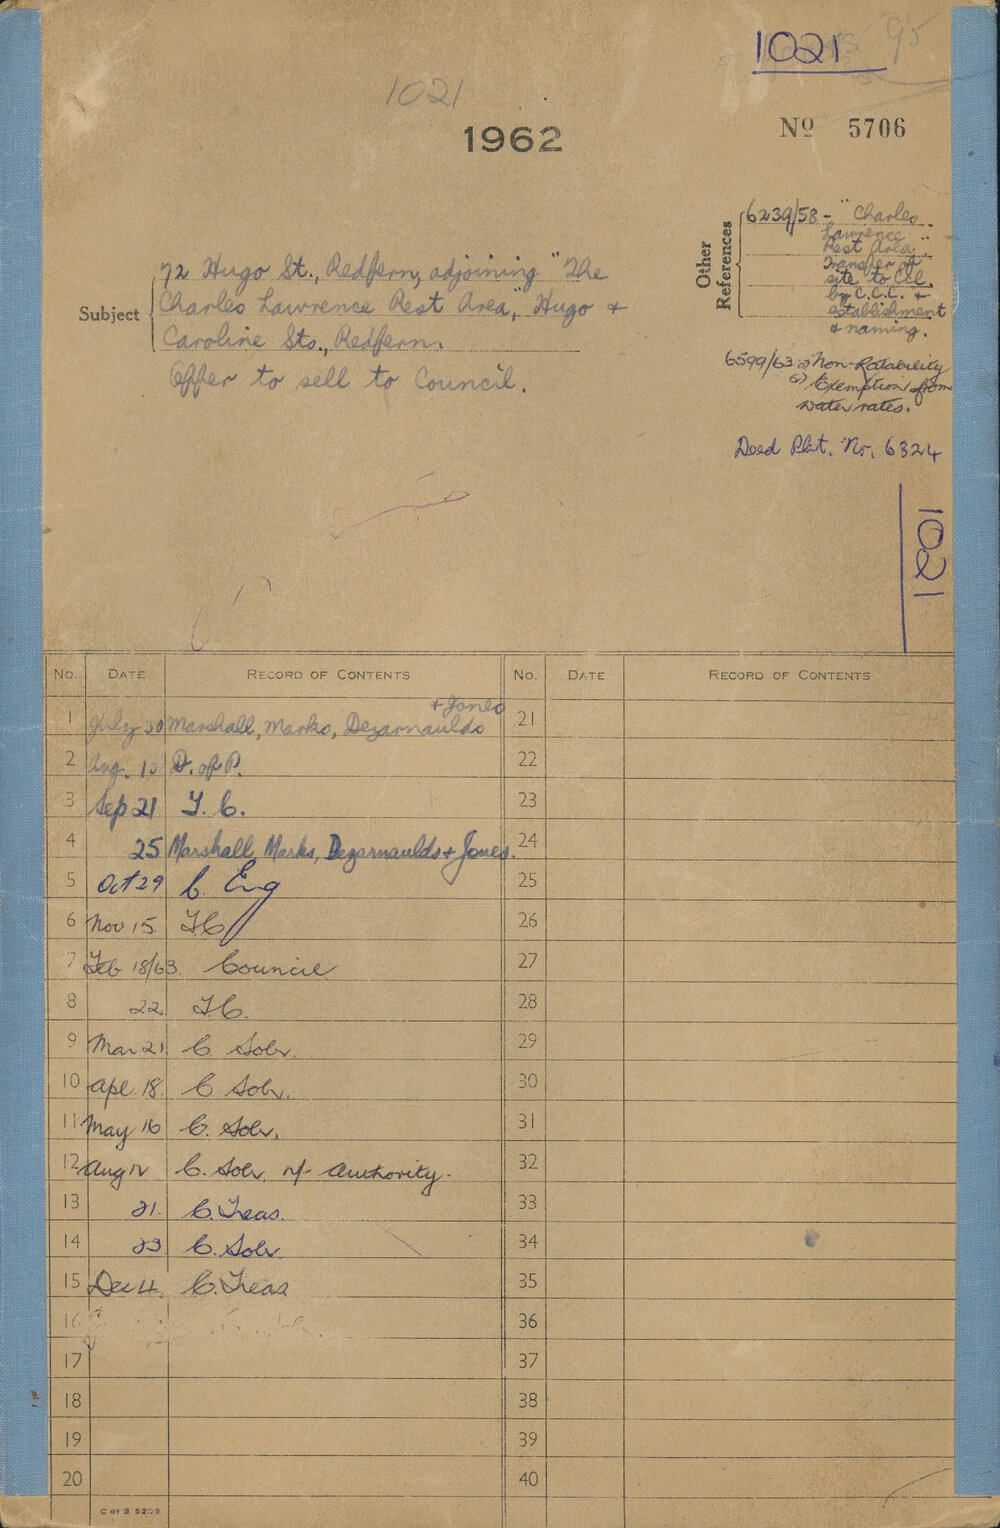 1021
1021
1962
No 5706
Other References
6239/58 - "Charles
Lawrence"
Rest Area
Transfer of
site to CCl.
by C.C.C. +
establishment
& naming.
Subject
72 Hugo St., Redfern, adjoining "The
Charles Lawrence Rest Area", Hugo +
Caroline Sts., Redfern.
Offer to sell to Council.
6599/63 Non-Ratability
Exemption from
water rates.
Deed Pkt. Nr. 6324
1021
No. DATE RECORD OF CONTENTS No. DATE RECORD OF CONTENTS
+ Jones
1 July 30 Marshall, Marks, Dezarnaulds 21
2 Aug. 10 D. of P. 22
3 Sep 21 T. C. 23
4 25 Marshall Marks, Dezarnaulds + Jones. 24
5 Oct 29 C. Eng 25
6 Nov 15 T C 26
7 Feb 18/63 Council 27
8 22 T C. 28
9 Mar 21 C Solr. 29
10 Apl. 18. C Solr. 30
11 May 16 C. Solr. 31
12 Aug 12 C. Solr. authority. 32
13 21. C. Treas. 33
14 23 C. Solr. 34
15 Dec 4. C. Treas 35
16 36
17 37
18 38
19 39
20 40
C OF S 5209